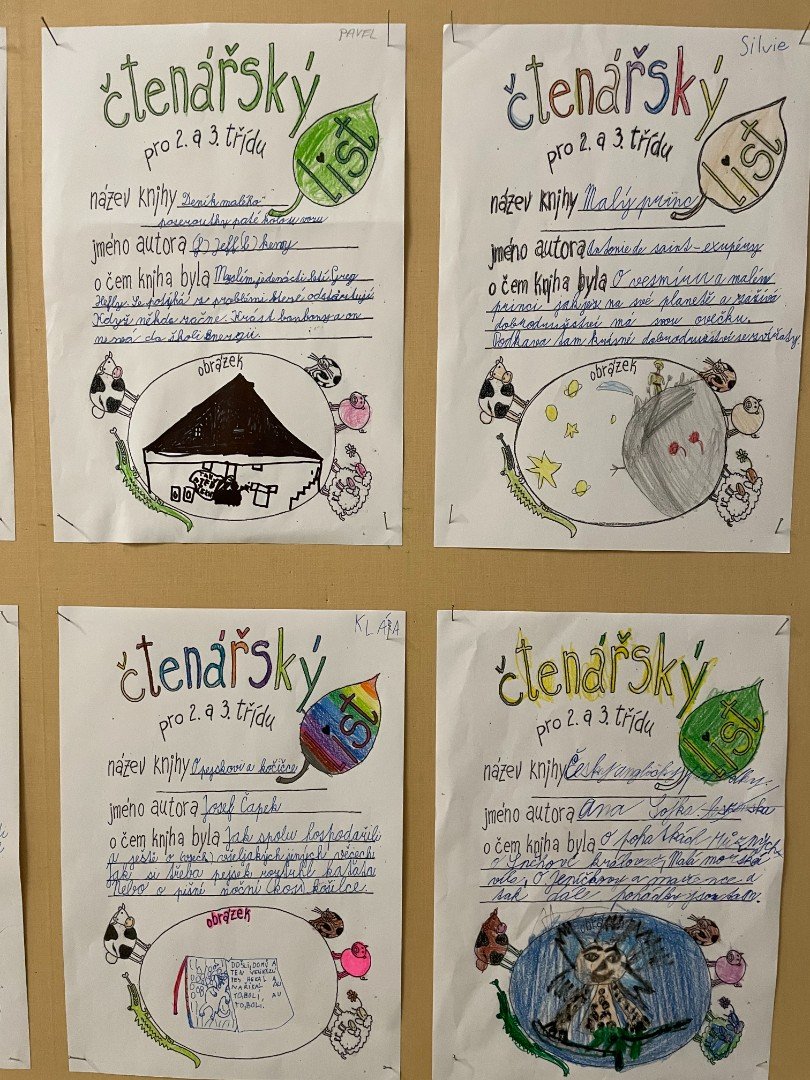 PAVEL
čtenářský
list
pro 2. a 3. třídu
název knihy Deník malého
poseroutky páté kolo u vozu
jméno autora Jeff Kenny
o čem kniha byla Myslím jedenácti letí Greg
Heffly. Se potýká s problémi které odstartují
Když někdo začne. Krást bonbony a on
nemá do školi energii.
obrázek
Silvie
čtenářský
list
pro 2. a 3. třídu
název knihy Malý princ
jméno autora Antonie de saint-exupéry
o čem kniha byla O vesmíru a malém
princi jak je na své planetě a zažívá
dobrodružství má svou ovečku.
Potkava tam krásné dobrodružství se zvířaty
obrázek
KLÁRA
čtenářský
list
pro 2. a 3. třídu
název knihy O pejskovi a kočičce
jméno autora Josef Čapek
o čem kniha byla Jak spolu hospodařili
a ještě o všelijakých jiných věcech
Jak si třeba pejsek roztrhl kaťata
Nebo o pišní noční kosi košilce.
obrázek
DOŠLI DOMŮ A
TEN
PES
NAŘÍKAL AU
TO BOLÍ, AU
TO BOLÍ.
čtenářský
list
pro 2. a 3. třídu
název knihy Česky anglické
jméno autora Ana
o čem kniha byla O pohátkách různých
o Sněhové královně, Malá mořská
víla, O Jeníčkovy a mařence a
tak dále pohádky jsou tam.